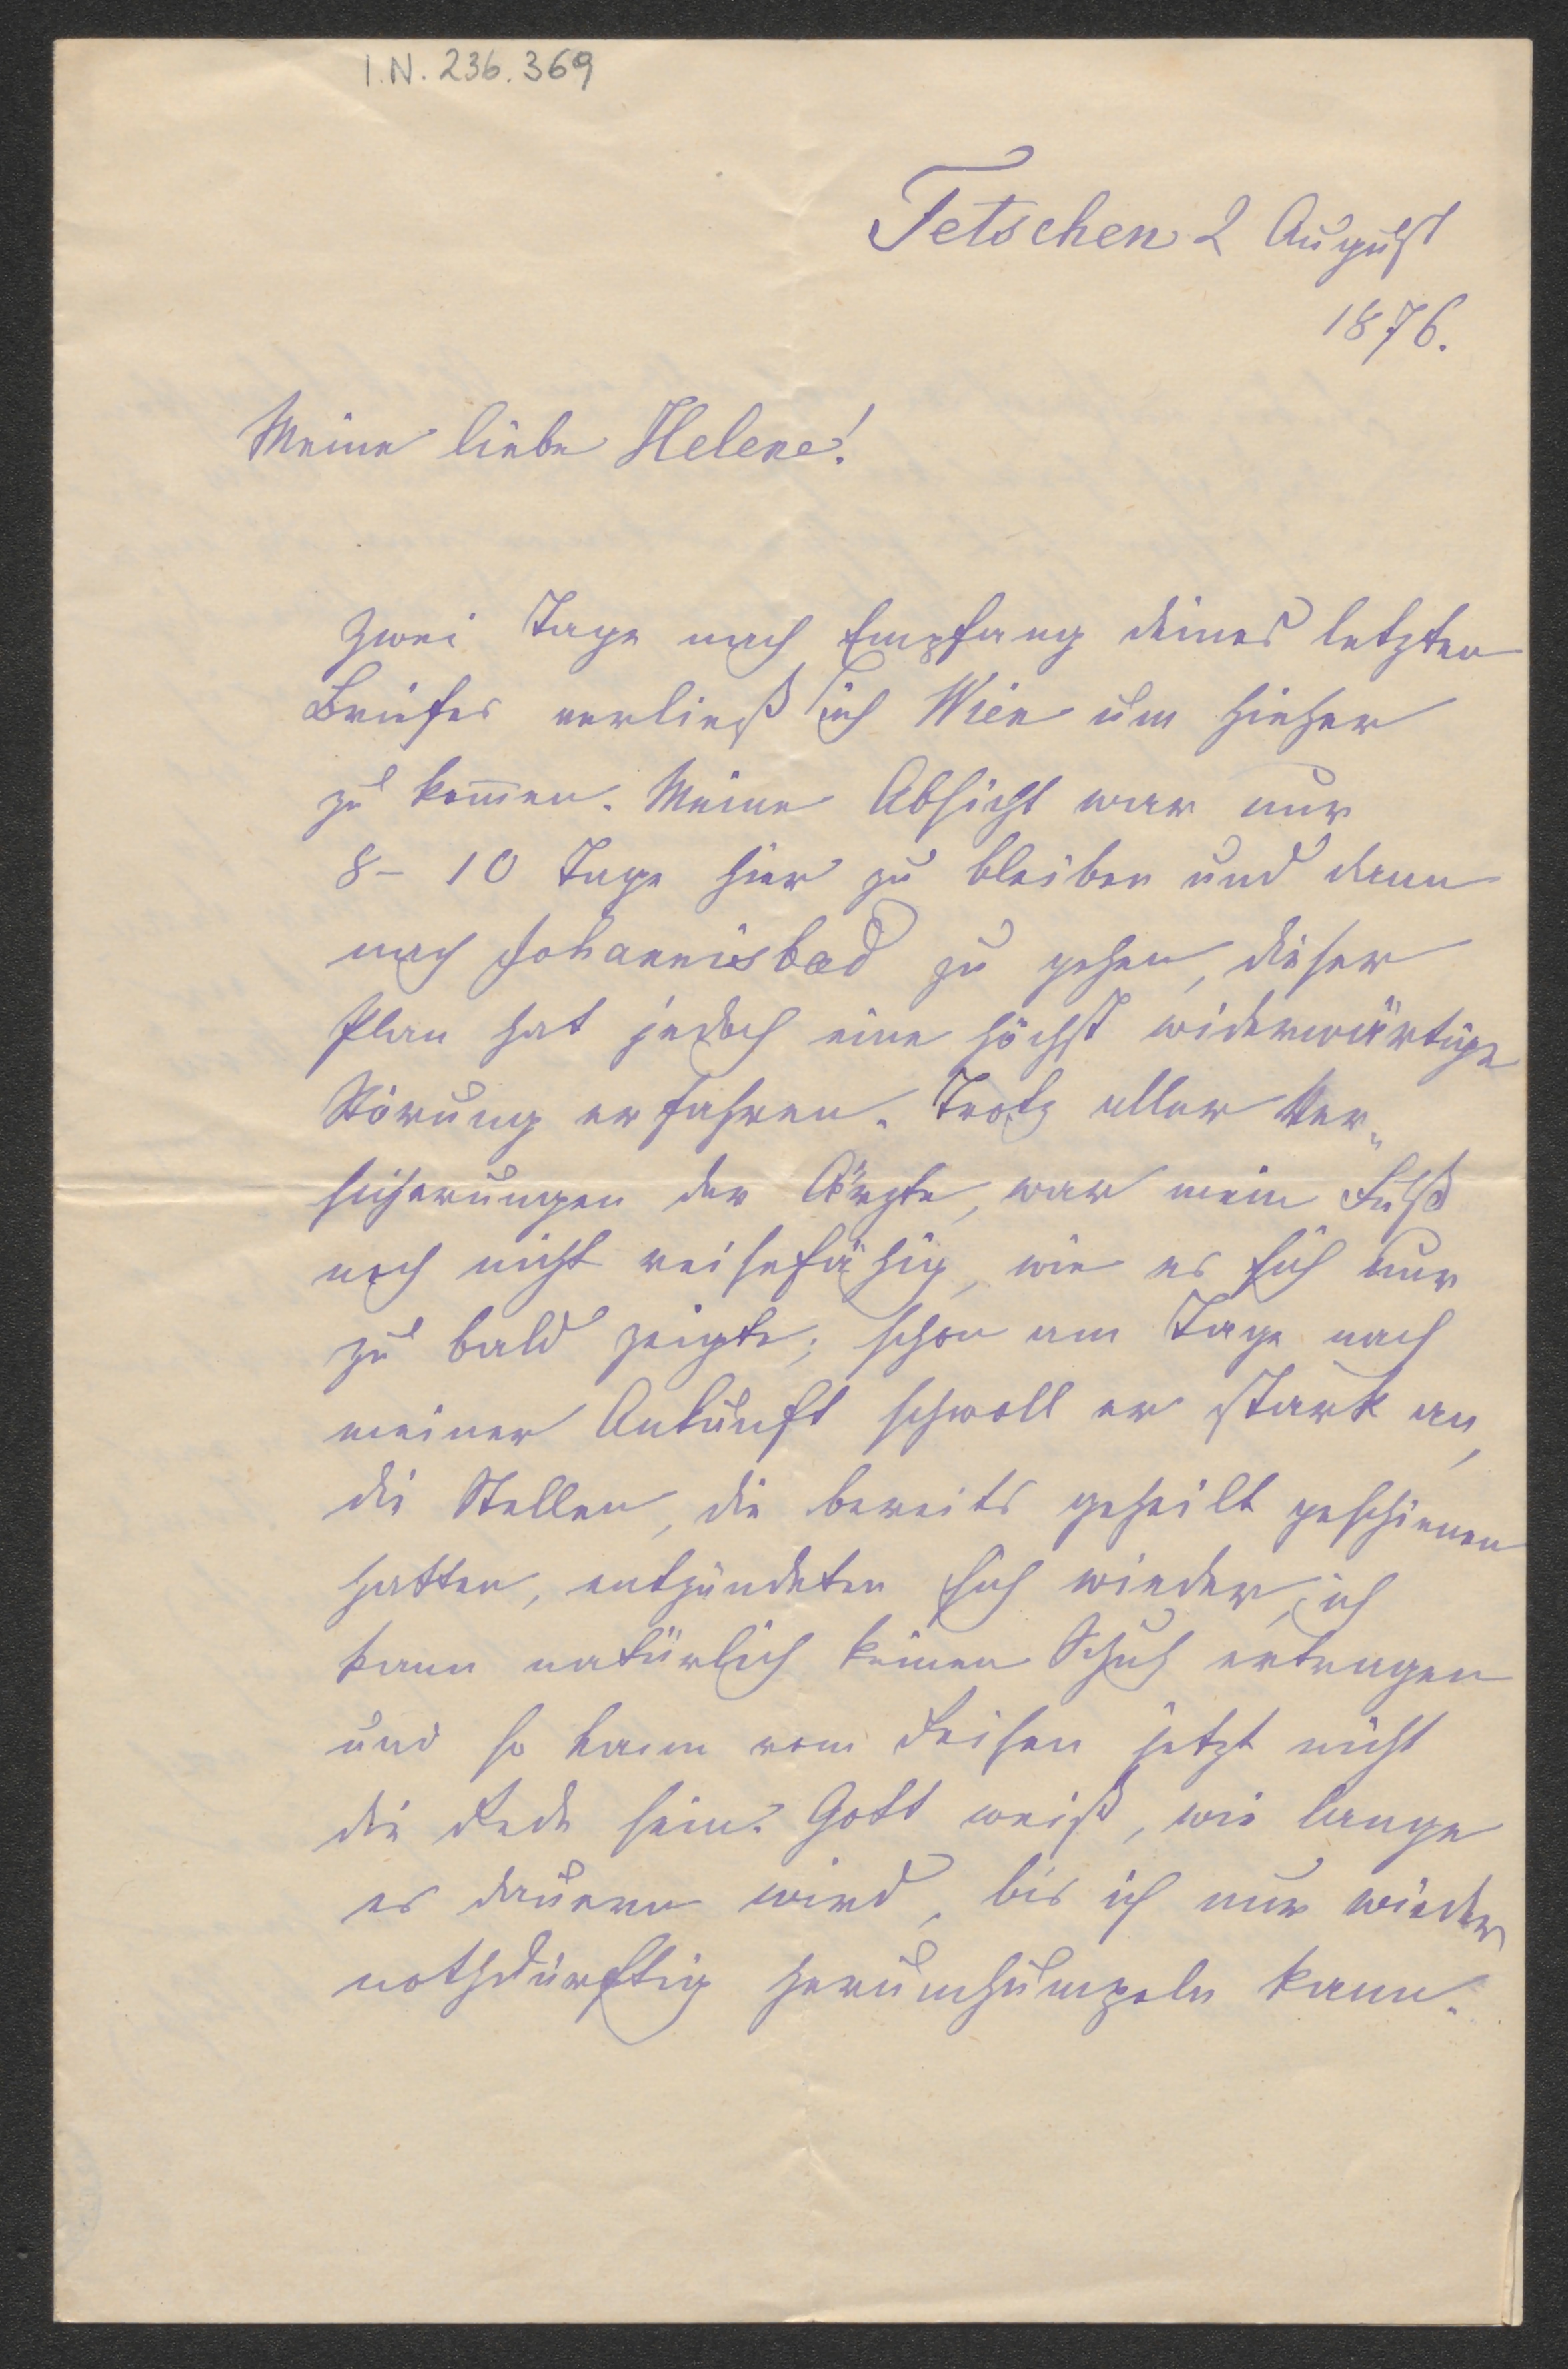 I.N. 236.369
Tetschen 2 August
1876.
Meine liebe Helene!
Zwei Tage nach Empfang deines letzten
Briefes verließ ich Wien um hieher
zu kom̅en. Meine Absicht war nur
8 – 10 Tage hier zu bleiben und dann
nach Johannisbad zu gehen, dieser
Plan hat jedoch eine höchst widerwärtige
Störung erfahren. Trotz aller Ver„
sicherungen der Ärzte, war mein Fuß
noch nicht reisefähig, wie es sich nur
zu bald zeigte; schon am Tage nach
meiner Ankunft schwoll er stark an,
die Stellen, die bereits geheilt geschienen
hatten, entzündeten sich wieder, ich
kann natürlich keinen Schuh ertragen
und so kann vom Reisen jetzt nicht
die Rede sein. Gott weiß, wie lange
es dauern wird, bis ich nur wieder
nothdürftig herumhumpeln kann.